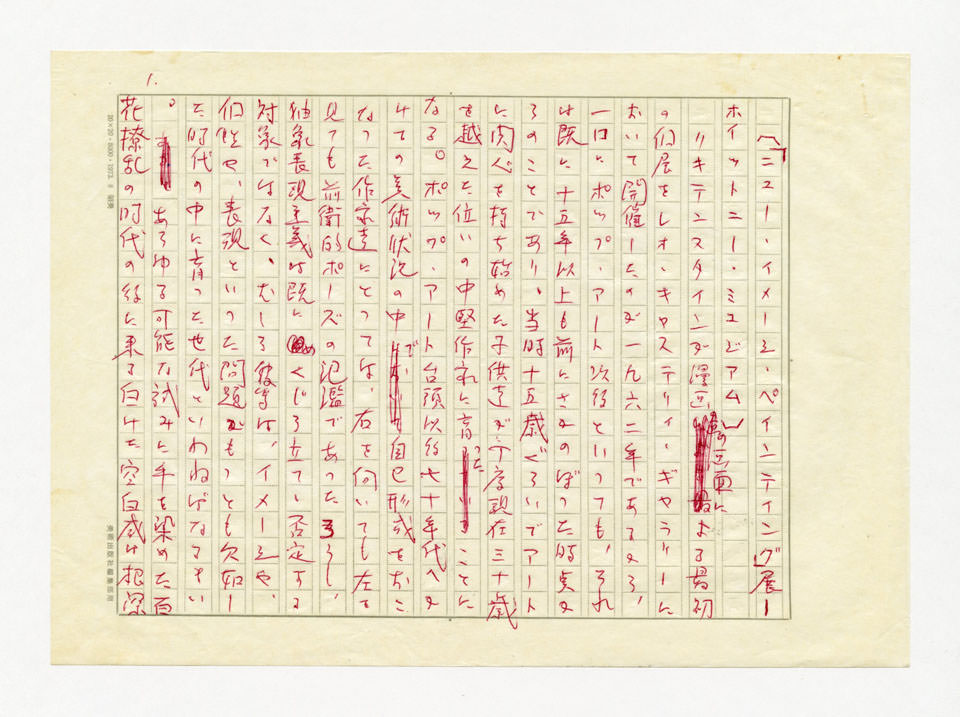 1.
「ニュー・イメージ・ペインティング展ー
ホイットニー・ミュジアム」
リキテンスタインが漫画的画面による最初
の個展をレオ・キャステリィ・ギャラリーに
おいて開催したのが一九六二年であるから、
一口にポップ・アート以後といっても、それ
は既に十五年以上も前にさかのぼった時点か
らのことであり、当時十五歳ぐらいでアート
に関心を持ち始めた子供達が丁度現在三十歳
を越えた位いの中堅作家に育ったことに
なる。ポップ・アート台頭以後七十年代へか
けての美術状況の中で自己形成をおこ
なった作家達にとっては、右を向いても左を
見ても前衛的ポーズの氾濫であったろうし、
抽象表現主義は既にくじら立てて否定する
対象ではなく、むしろ彼等は、イメージや、
個性や、表現といった問題がもっとも欠如し
た時代の中に育った世代といわねばなるまい
。あらゆる可能な試みに手を染めた百
花撩乱の時代の後に来る白けた空白感は根深
20×20・8000・1973.
美術出版社編集部用